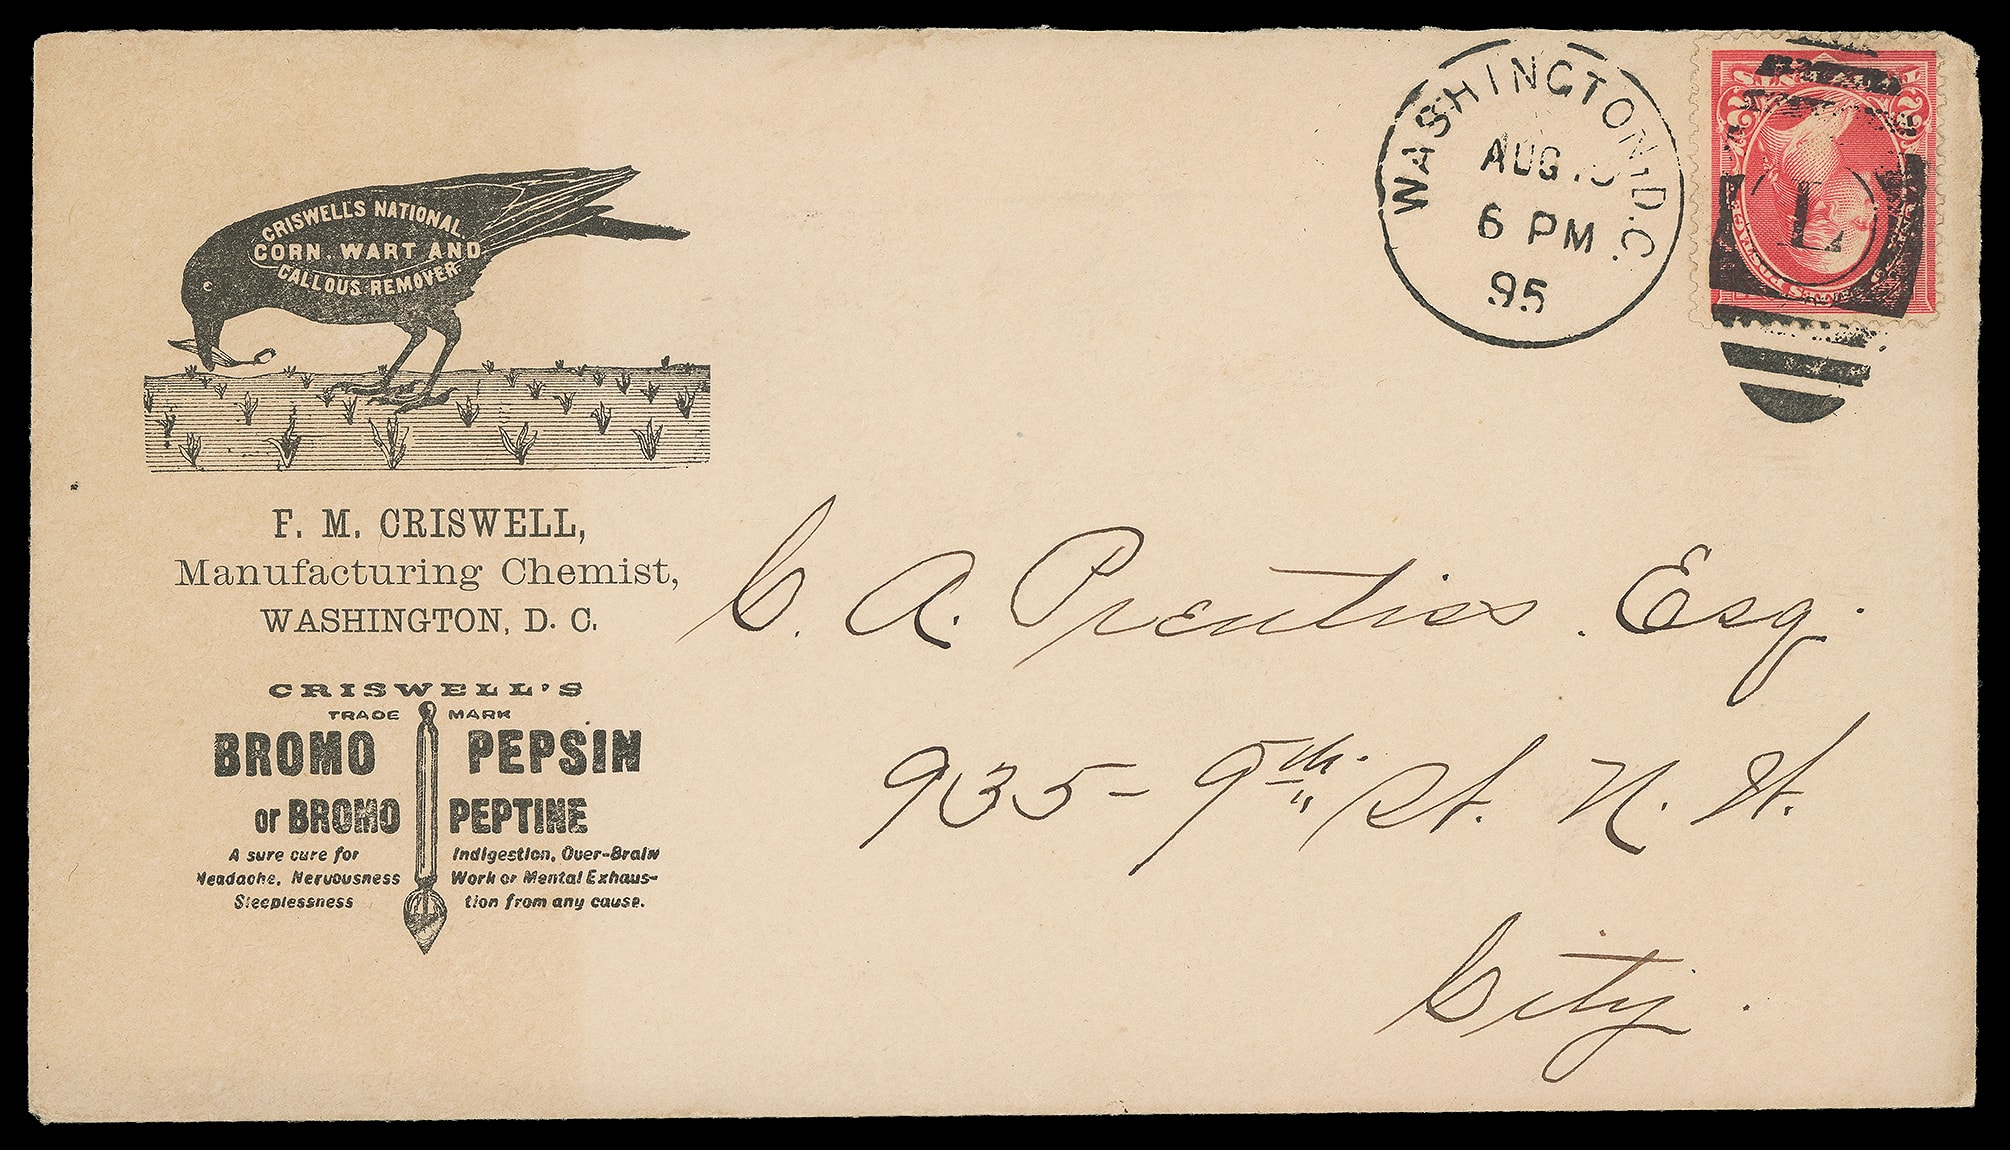 CRISWELLS NATIONAL
CORN, WART AND
CALLOUS REMOVER
F. M. CRISWELL,
Manufacturing Chemist,
WASHINGTON, D. C.
CRISWELL'S
TRADE MARK
BROMO PEPSIN
or BROMO PEPTINE
A sure cure for Indigestion, Over-Brain
Headache, Nervousness Work or Mental Exhaus-
Sleeplessness tion from any cause.
WASHINGTON, D.C.
AUG
6 PM
95
L
2 2
C. A. Prentiss. Esq.
935 - 9th St. N. W.
City.